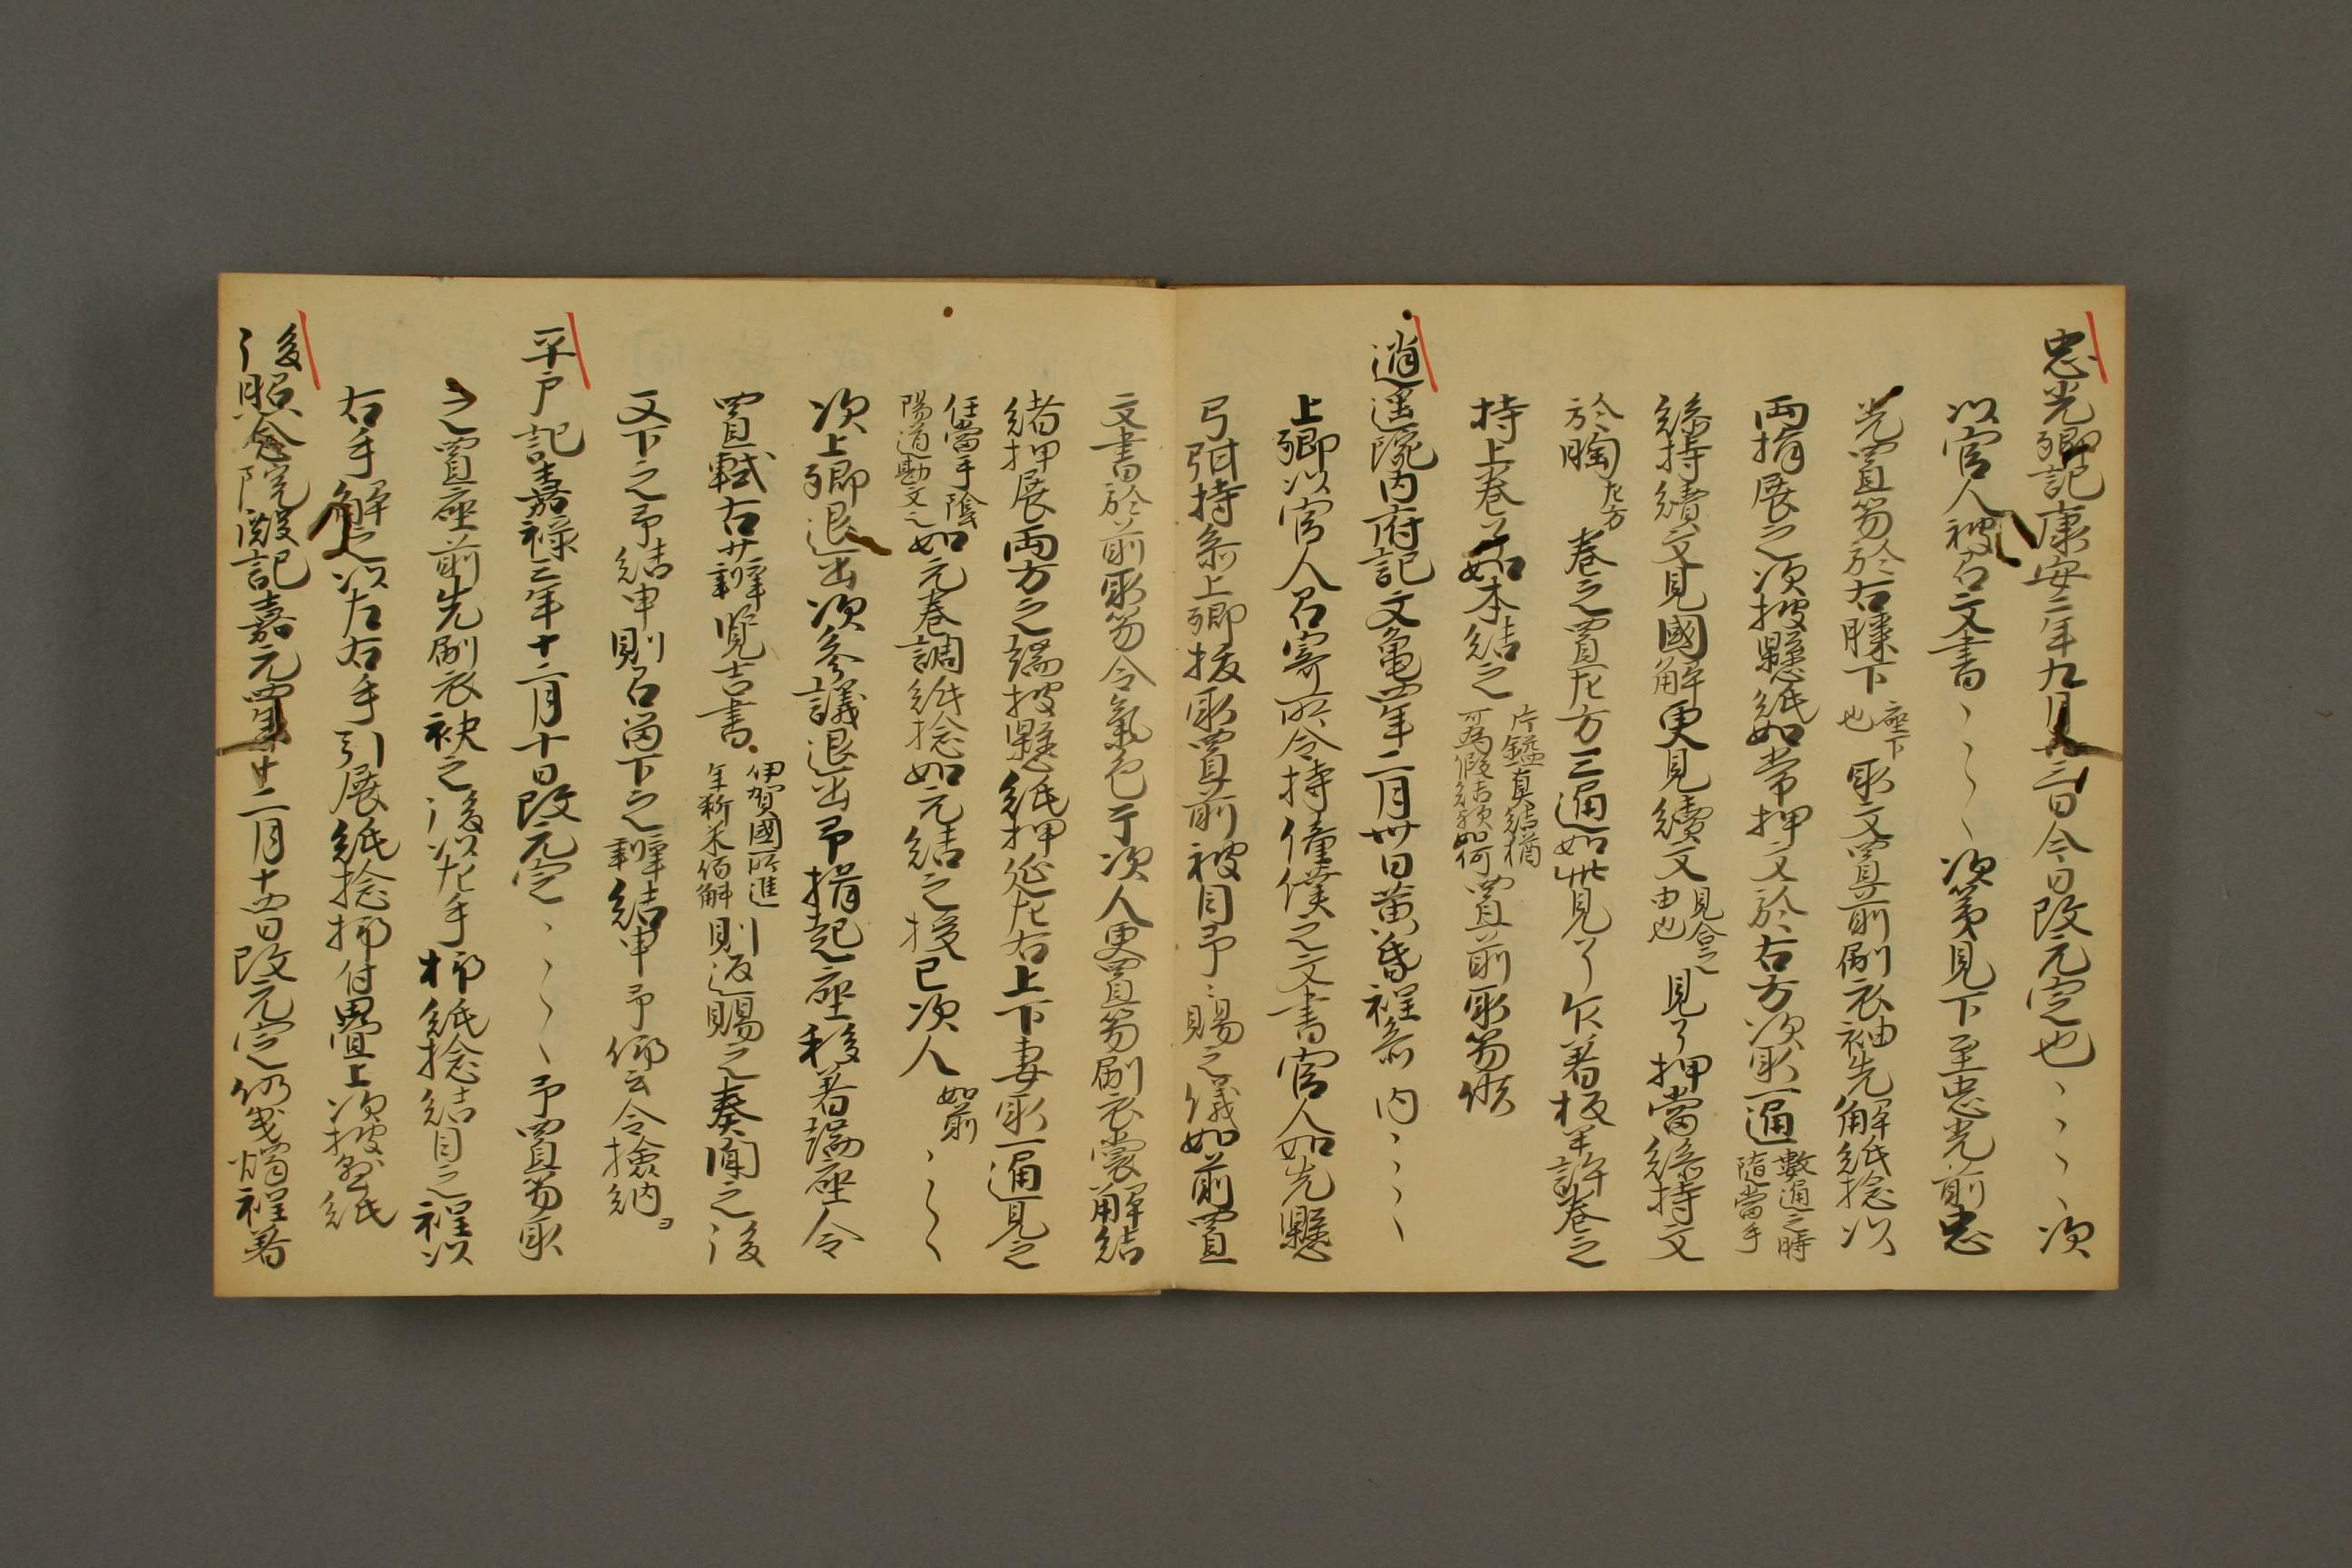 忠光卿記康安二年九月廿三日今日改元定也、、、、次
以官人被召文書、、、、次第見下至忠光前忠
光置笏於右膝下座下也取文置前刷衣袖先解紙捻以
両指展之次披懸紙如常押文於右方次取一通數通之時隨當手
綣持續文見國解更見續文見合之由也見了押當綣持文
於胸左方巻之置左方三通如此見了欠著板笇許巻之
持上巻了如本結之片鎰真結猶可為假結歟如何置前取笏候
逍遥院内府記文亀四年二月卅日黄昏程参内、、、、
上卿以官人召寄所令持僮僕之文書官人如先懸
弓弭持参上卿抜取置前被目予、賜之儀如前置
文書於前取笏令氣色于次人更置笏刷衣裳解結
緒押展両方之端披懸紙押遣左右上下妻取一通見之
任當手陰陽道勘文也如元巻調紙捻如元結之授已次人如前、、、、
次上卿退出次参議退出予揖起座移著端座令
置軾右廾辯覧吉書伊賀國所進年料米佰斛則返賜之奏聞之後
又下之予結申則召留下之辯結申予仰云令撿納ヨ
平戸記嘉禄三年十二月十日改元定、、、、予置笏取
之置座前先刷衣袂之後以左手抑紙捻結目之程以
右手解之以左右手引展紙捻抑付疊上次披懸紙
後照念院殿記嘉元四年十二月十四日改元定仍戌燭程著